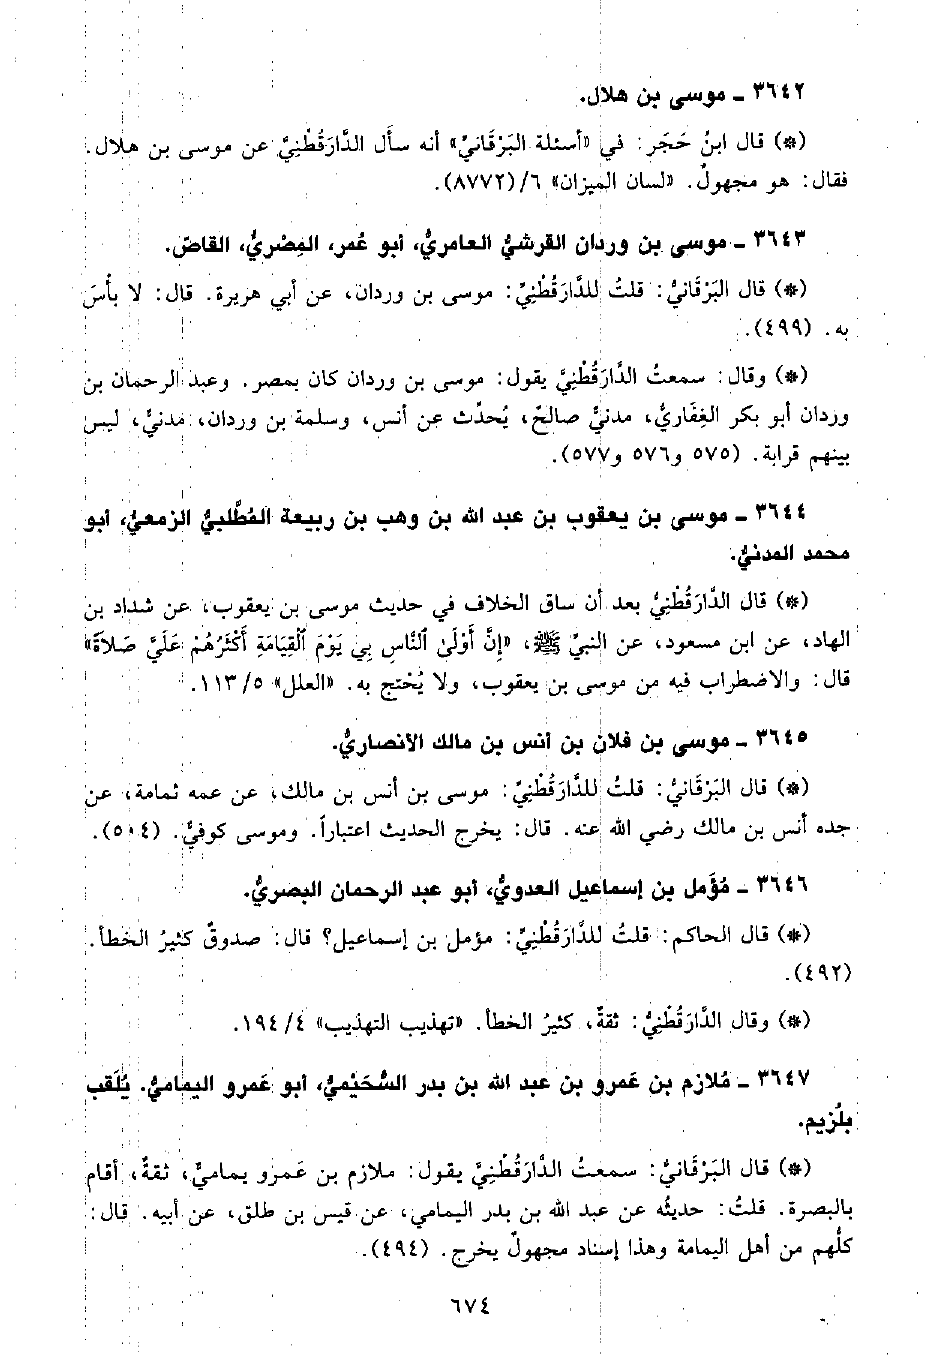 ٣٦٤٢ ـ موسى بن هلال.
(*) قال ابنُ حَجَر: في «أسئلة البَرْقانيِّ» أنه سأَل الدَّارَقُطْنِيَّ عن موسى بن هلال.
فقال: هو مجهولٌ. «لسان الميزان» ٦/(٨٧٧٢).
٣٦٤٣ ـ موسى بن وردان القرشيُّ العامريُّ، أبو عُمر، المِصْريُّ، القاصّ.
(*) قال البَرْقانيُّ: قلتُ للدَّارَقُطْنِيِّ: موسى بن وردان، عن أبي هريرة. قال: لا بأْسَ
به. (٤٩٩).
(*) وقال: سمعتُ الدَّارَقُطْنِيَّ يقول: موسى بن وردان كان بمصر. وعبد الرحمان بن
وردان أبو بكر الغِفَاريُّ، مدنيٌّ صالحٌ، يُحدِّث عن أنس، وسلمة بن وردان، مدنيٌّ، ليس
بينهم قرابة. (٥٧٥ و٥٧٦ و٥٧٧).
٣٦٤٤ ـ موسى بن يعقوب بن عبد الله بن وهب بن ربيعة المُطَّلبيُّ الزمعيُّ، أبو
محمد المدنيُّ.
(*) قال الدَّارَقُطْنِيُّ بعد أن ساق الخلاف في حديث موسى بن يعقوب، عن شداد بن
الهاد، عن ابن مسعود، عن النبيِّ ﷺ، «إِنَّ أَوْلَىٰ ٱلنَّاسِ بِي يَوْمَ ٱلْقِيَامَةِ أَكْثَرُهُمْ عَلَيَّ صَلَاةً»
قال: والاضطراب فيه من موسى بن يعقوب، ولا يُحْتج به. «العلل» ٥/١١٣.
٣٦٤٥ ـ موسى بن فلان بن أنس بن مالك الأنصاريُّ.
(*) قال البَرْقَانيُّ: قلتُ للدَّارَقُطْنِيِّ: موسى بن أنس بن مالك، عن عمه ثمامة، عن
جده أنس بن مالك رضي الله عنه. قال: يخرج الحديث اعتباراً. وموسى كوفيٌّ. (٥٠٤).
٣٦٤٦ ـ مُؤَمل بن إسماعيل العدويُّ، أبو عبد الرحمان البصريُّ.
(*) قال الحاكم: قلتُ للدَّارَقُطْنِيِّ: مؤمل بن إسماعيل؟ قال: صدوقٌ كثيرُ الخطأ.
(٤٩٢).
(*) وقال الدَّارَقُطْنِيُّ: ثقةٌ، كثيرُ الخطأ. «تهذيب التهذيب» ٤/١٩٤.
٣٦٤٧ ـ مُلازم بن عَمرو بن عبد الله بن بدر السُّحَيْميُّ، أبو عَمرو اليماميُّ. يُلَقب
بلُزيم.
(*) قال البَرْقَانيُّ: سمعتُ الدَّارَقُطْنِيَّ يقول: ملازم بن عَمرو يماميٌّ، ثقةٌ، أقام
بالبصرة. قلتُ: حديثُه عن عبد الله بن بدر اليمامي، عن قيس بن طلق، عن أبيه. قال:
كلُّهم من أهل اليمامة وهذا إسناد مجهولٌ يخرج. (٤٩٤).
٦٧٤